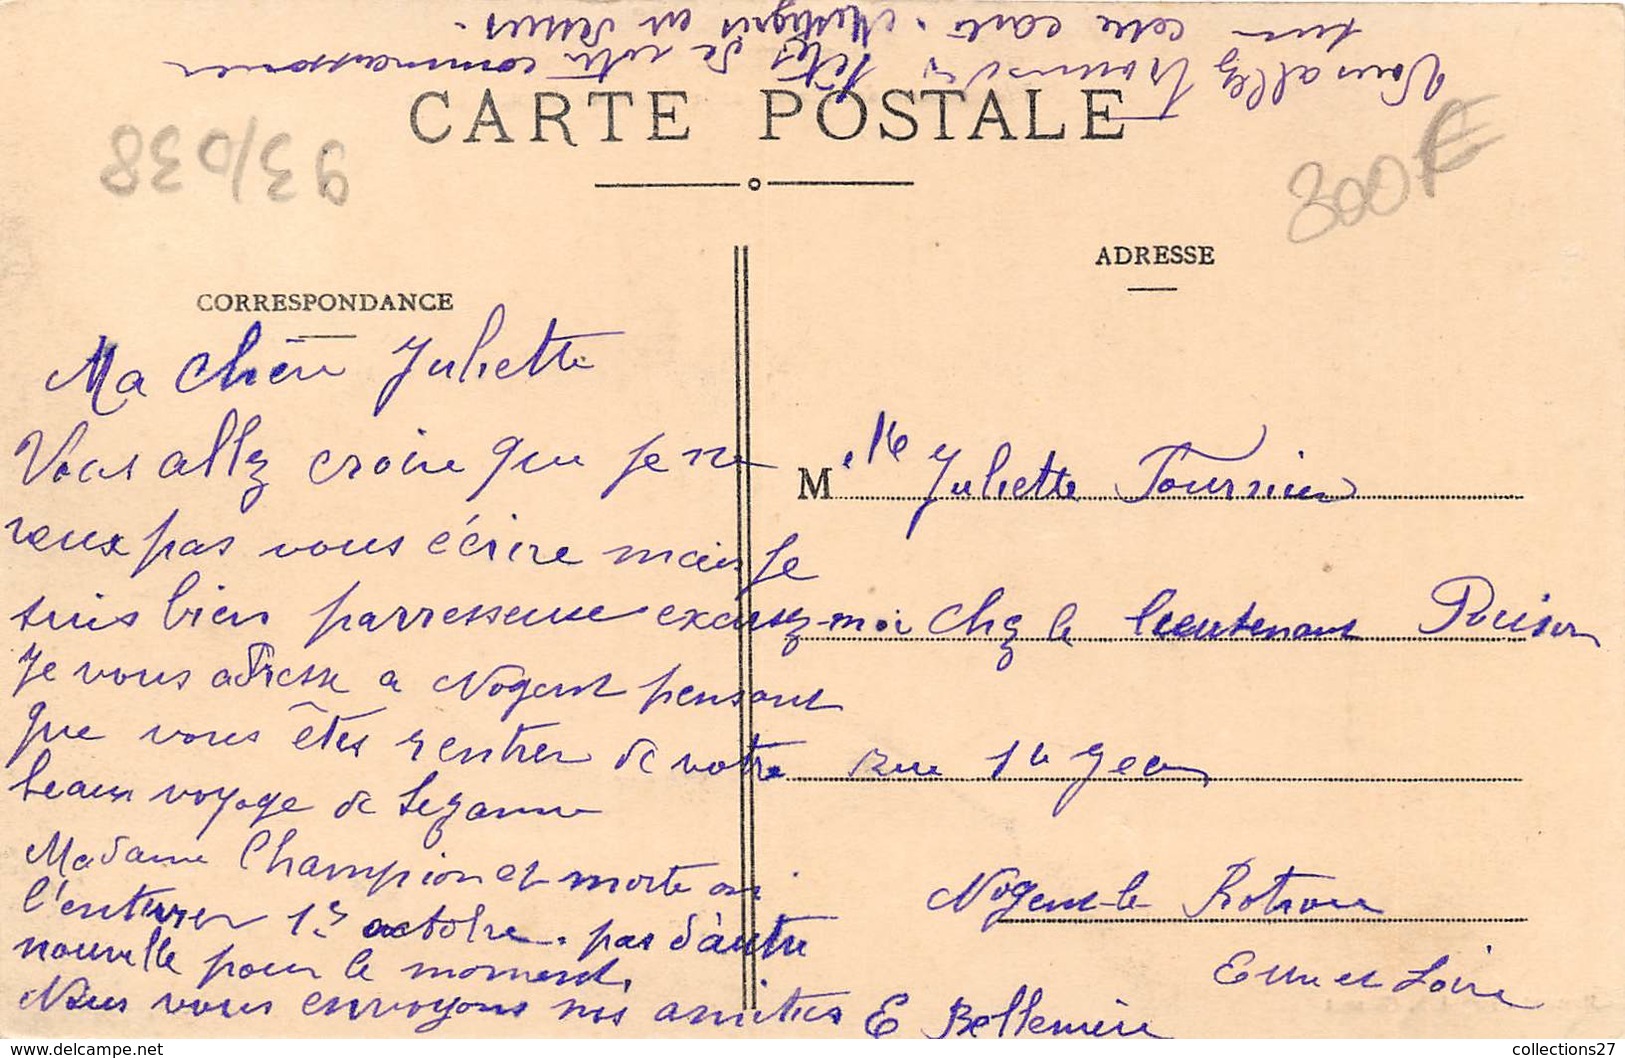 Vous allez trouver des têtes de votre connaissance
sur cette carte. Montigris en dessus.
CARTE POSTALE
93/038
300€
CORRESPONDANCE
Ma chère Juliette
Vous allez croire que je ne
veux pas vous écrire mais je
suis bien parresseuse excusez-moi
Je vous adresse a Nogent pensant
que vous êtes rentrer de votre
beaux voyage de Sezanne
Madame Champion et morte on
l'enterrer 1er octobre. pas d'autre
nouvelle pour le moment.
Nous vous envoyons nos amitiés E Bellemère
ADRESSE
Mlle Juliette Fournier
chez le lieutenant Poirison
Rue St Jean
Nogent-le Rotrou
Eure et Loire
delcampe.net
collections27